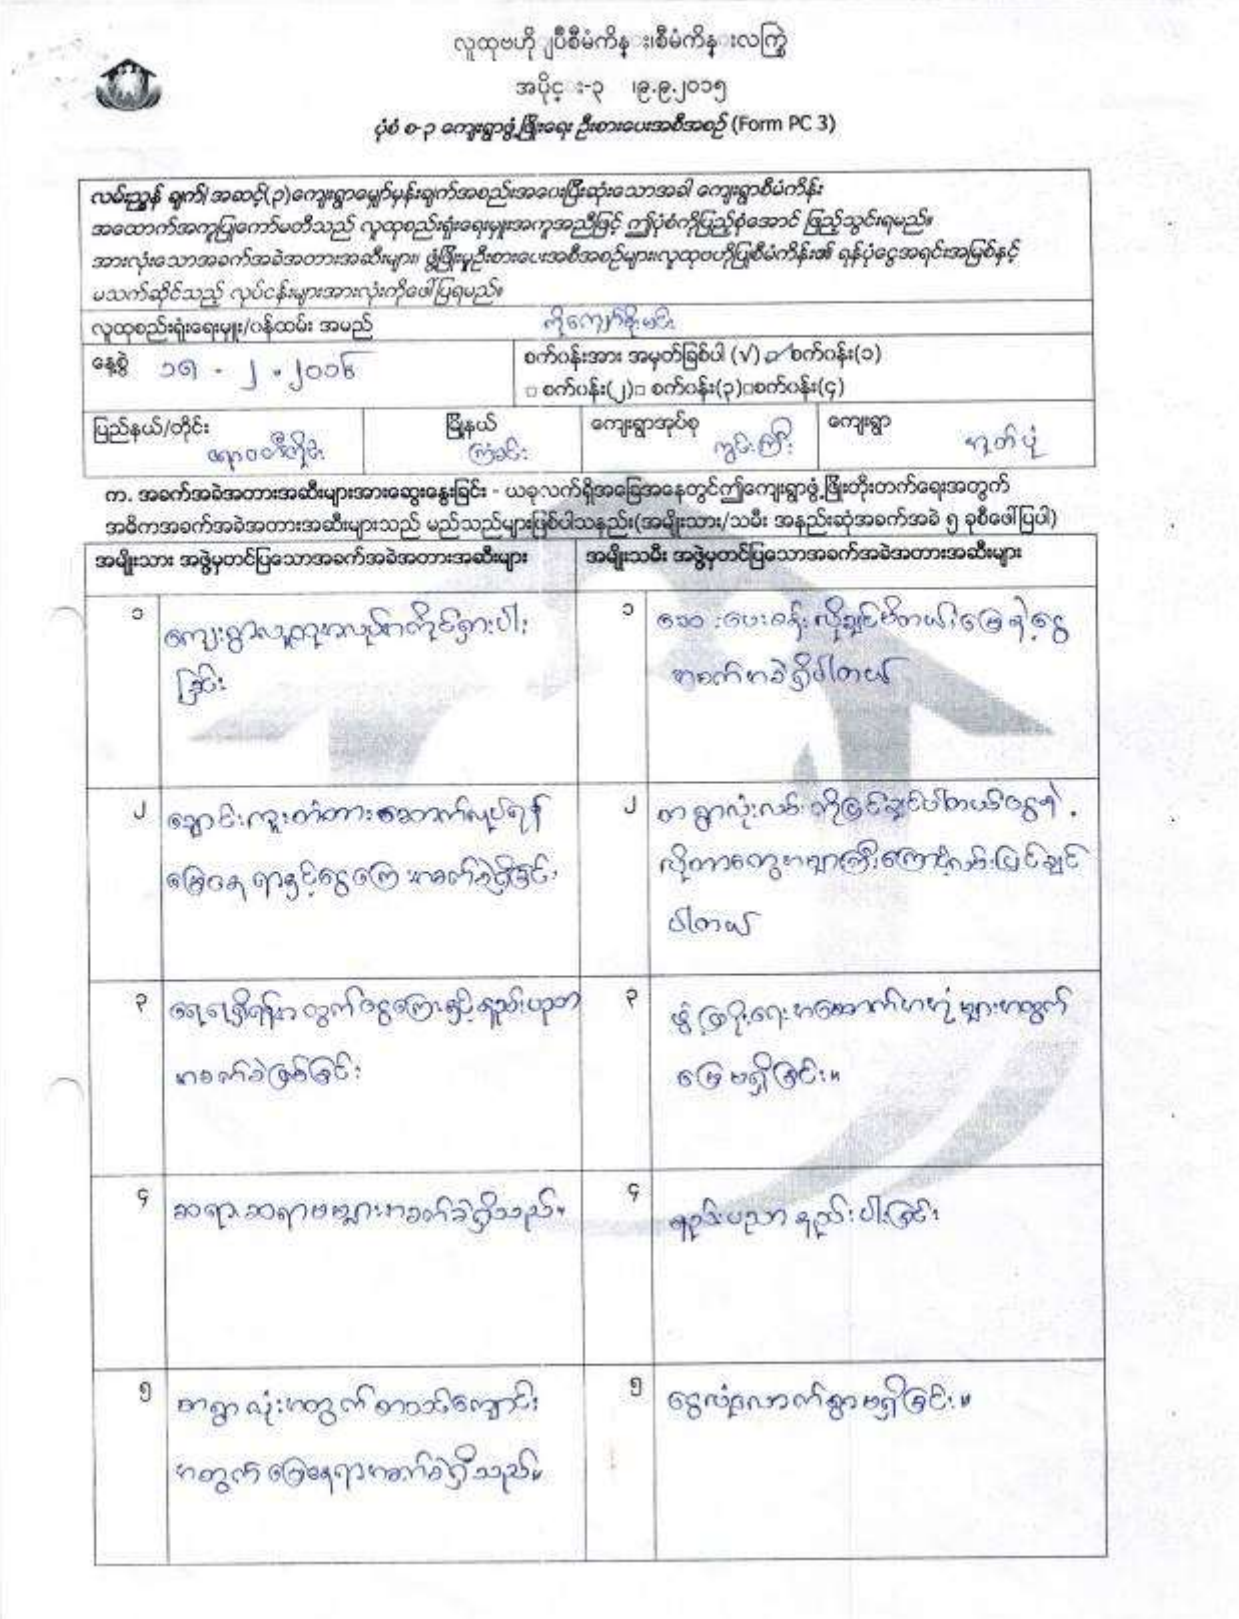 လူထုဗဟိုျပဳစီမံကိန္း၊စီမံကိန္းလက္စြဲ
အပိုင္း-၃ ၊၉.၉.၂၀၁၅
ပုံစံ စ-၃ ကျေးရွာဖွံ့ဖြိုးရေး ဦးစားပေးအစီအစဉ် (Form PC 3)
လမ်းညွှန် ချက်၊ အဆင့်(၃)ကျေးရွာမျှော်မှန်းချက်အစည်းအဝေးပြီးဆုံးသောအခါ ကျေးရွာစီမံကိန်း
အထောက်အကူပြုကော်မတီသည် လူထုစည်းရုံးရေးမှူးအကူအညီဖြင့် ဤပုံစံကိုပြည့်စုံအောင် ဖြည့်သွင်းရမည်။
အားလုံးသောအခက်အခဲအတားအဆီးများ၊ ဖွံ့ဖြိုးမှုဦးစားပေးအစီအစဉ်များ၊လူထုဗဟိုပြုစီမံကိန်း၏ ရန်ပုံငွေအရင်းအမြစ်နှင့်
မသက်ဆိုင်သည့် လုပ်ငန်းများအားလုံးကိုဖေါ်ပြရမည်။
လူထုစည်းရုံးရေးမှူး/ဝန်ထမ်း အမည် ကိုကျော်စိုးမင်း
နေ့စွဲ ၁၅ . ၂ . ၂၀၁၆
စက်ဝန်းအား အမှတ်ခြစ်ပါ (√) ☑ စက်ဝန်း(၁)
□ စက်ဝန်း(၂)□ စက်ဝန်း(၃)□စက်ဝန်း(၄)
ပြည်နယ်/တိုင်း ဧရာဝတီတိုင်း မြို့နယ် ကြံခင်း ကျေးရွာအုပ်စု ကွင်းကြီး ကျေးရွာ
က. အခက်အခဲအတားအဆီးများအားဆွေးနွေးခြင်း - ယခုလက်ရှိအခြေအနေတွင်ဤကျေးရွာဖွံ့ဖြိုးတိုးတက်ရေးအတွက်
အဓိကအခက်အခဲအတားအဆီးများသည် မည်သည်များဖြစ်ပါသနည်း(အမျိုးသား/သမီး အနည်းဆုံအခက်အခဲ ၅ ခုစီဖေါ်ပြပါ)
အမျိုးသား အဖွဲ့မှတင်ပြသောအခက်အခဲအတားအဆီးများ အမျိုးသမီး အဖွဲ့မှတင်ပြသောအခက်အခဲအတားအဆီးများ
၁ ကျေးရွာလူထုအလုပ်အကိုင်ရှားပါး
ခြင်း
၁ ဆေးပေးခန်း လိုချင်မိတယ်၊ မြေနဲ့ငွေ
အခက်အခဲရှိပါတယ်
၂ ချောင်းကူးတံတားဆောက်လုပ်ရန်
မြေနေရာနှင့်ငွေကြေးအခက်ခဲရှိခြင်း
၂ စာရွာလုံးလမ်းကိုမြင်ချင်ပါတယ်ငွေရဲ့
လိုတာတွေအများကြီးကြောင့်လမ်းပြင်ချင်
ပါတယ်
၃ ရေရရှိရန်အတွက်ငွေကြေးနှင့်နည်းပညာ
အခက်ခဲဖြစ်ခြင်း
၃ ဖွံ့ဖြိုးရေးအဆောက်အအုံများအတွက်
မြေမရှိခြင်း။
၄ ဆရာ၊ ဆရာမများအခက်ခဲရှိသည်။
၄ နည်းပညာ နည်းပါးခြင်း
၅ စာရွာလုံးအတွက် စာသင်ကျောင်း
အတွက် မြေနေရာအခက်ခဲရှိသည်။
၅ ငွေလုံလောက်စွာမရှိခြင်း။